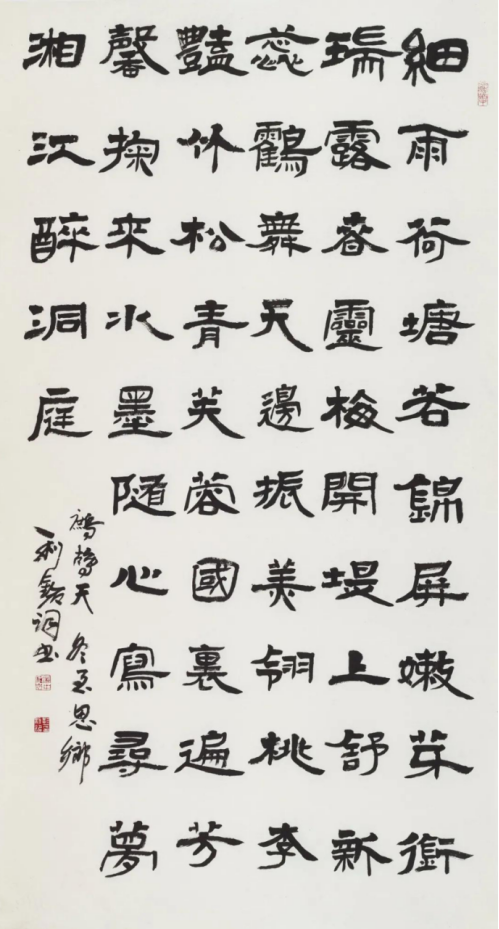 細雨荷塘若錦屏嫩芽銜
瑞露春靈梅開堤上舒新
蕊鶴舞天邊振美翎桃李
豔竹松青芙蓉國裏遍芳
馨掬來水墨隨心寫尋夢
湘江醉洞庭
鷓鴣天 冬至思鄉
詞書